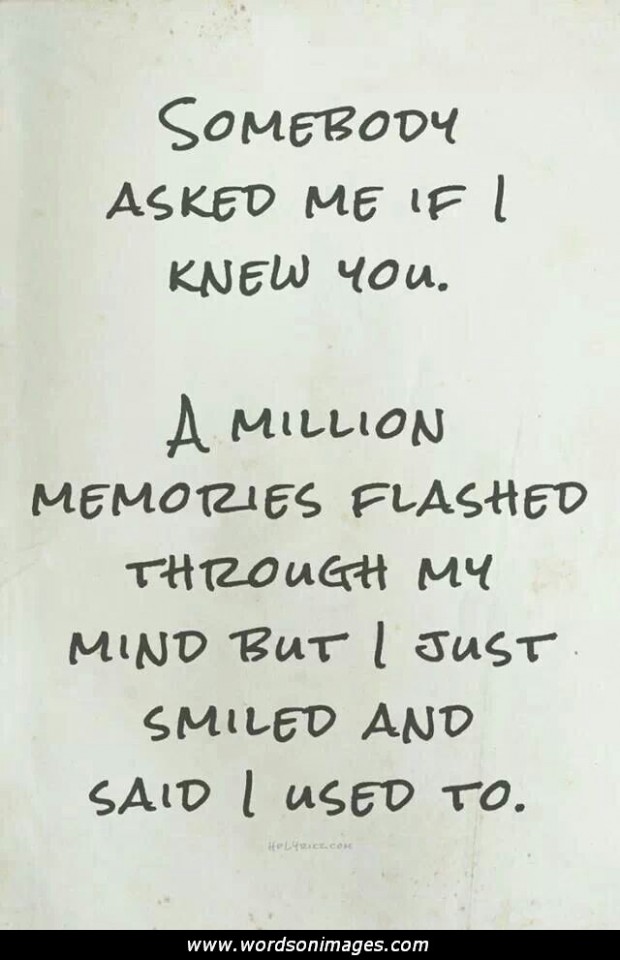 SOMEBODY
ASKED ME IF I
KNEW YOU.
A MILLION
MEMORIES FLASHED
THROUGH MY
MIND BUT I JUST
SMILED AND
SAID I USED TO.
HPLYRIKZ.COM
www.wordsonimages.com